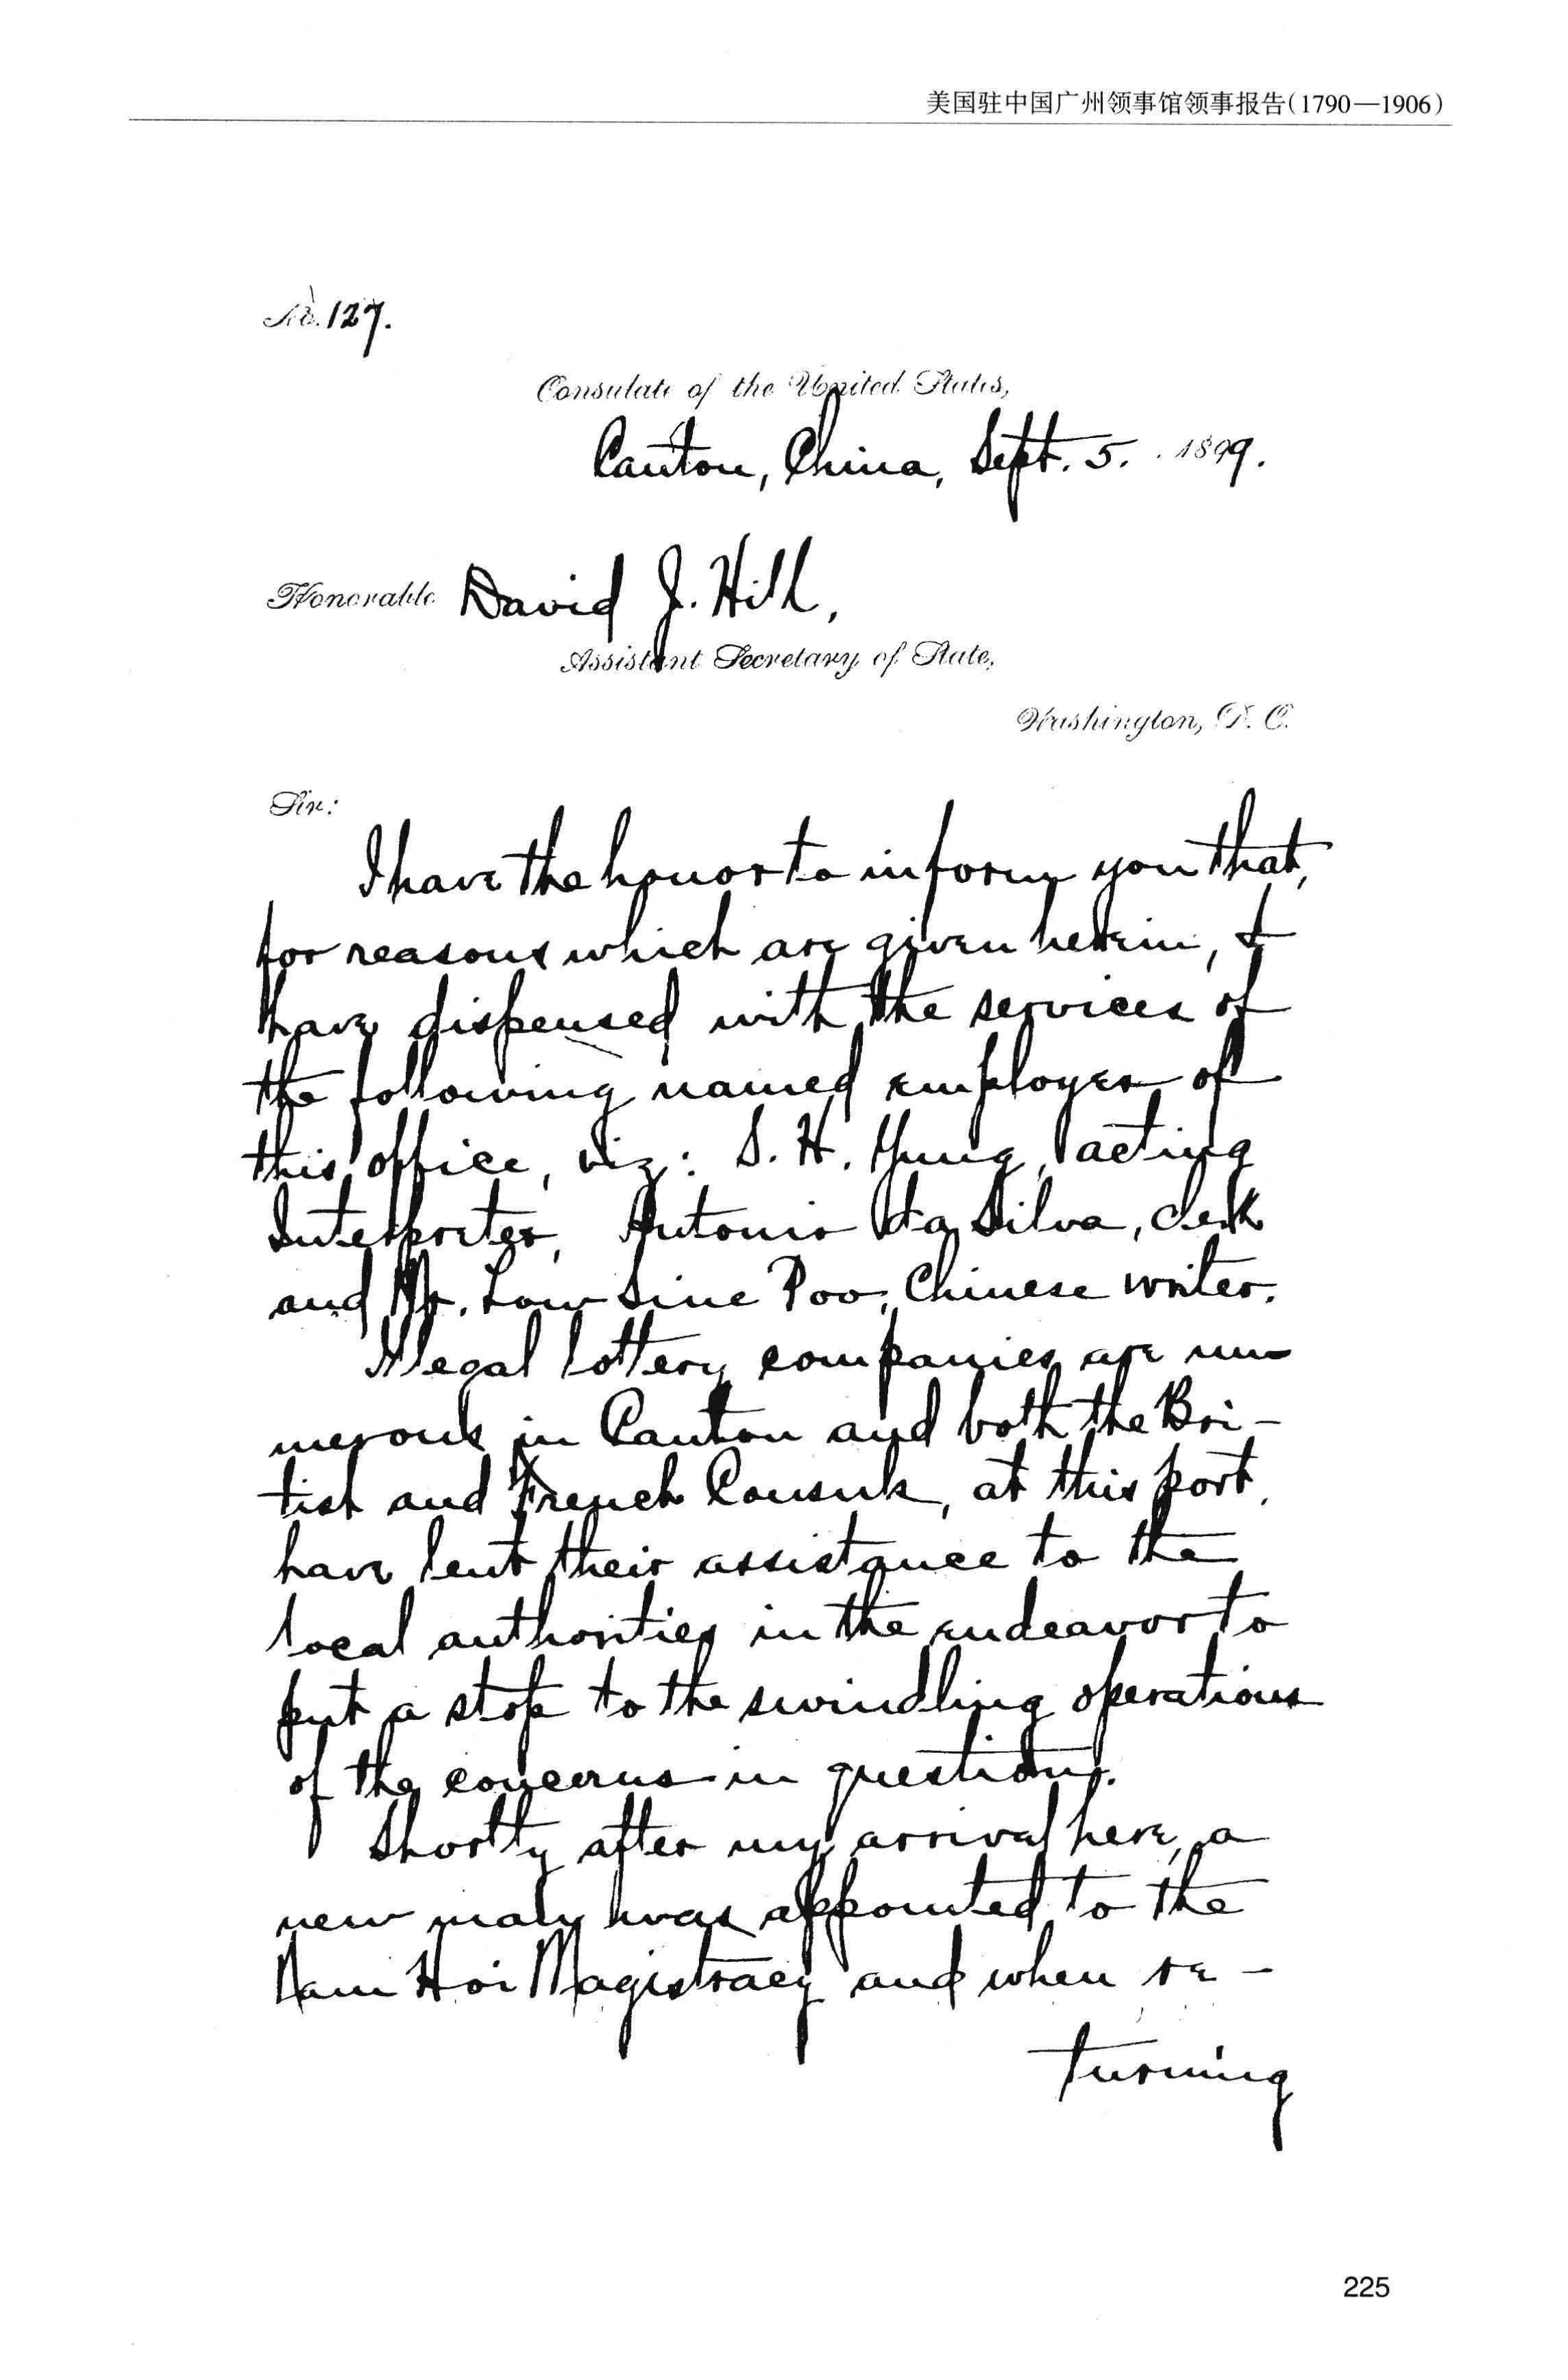 美国驻中国广州领事馆领事报告(1790—1906)
No. 127.
Consulate of the United States,
Canton, China, Sept. 5. 1899.
Honorable David J. Hill,
Assistant Secretary of State,
Washington, D. C.
Sir:
I have the honor to inform you that,
for reasons which are given herein, I
have dispensed with the services of
the following named employes of
this office, viz: S. H. Yung, acting
Interpreter, Antonio da Silva, clerk
and Mr. Low Sine Poo, Chinese writer.
Illegal lottery companies are nu-
merous in Canton and both the Bri-
tish and French Consuls, at this port,
have lent their assistance to the
local authorities in the endeavor to
put a stop to the swindling operations
of the concerns in question.
Shortly after my arrival here, a
new man was appointed to the
Nam Hoi Magistracy and when re-
turning
225